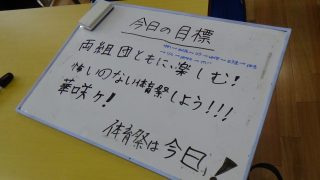 今日の目標
両組団ともに、楽しむ!
悔いのない体育祭しよう!!!
華咲ケ!
体育祭は今日!